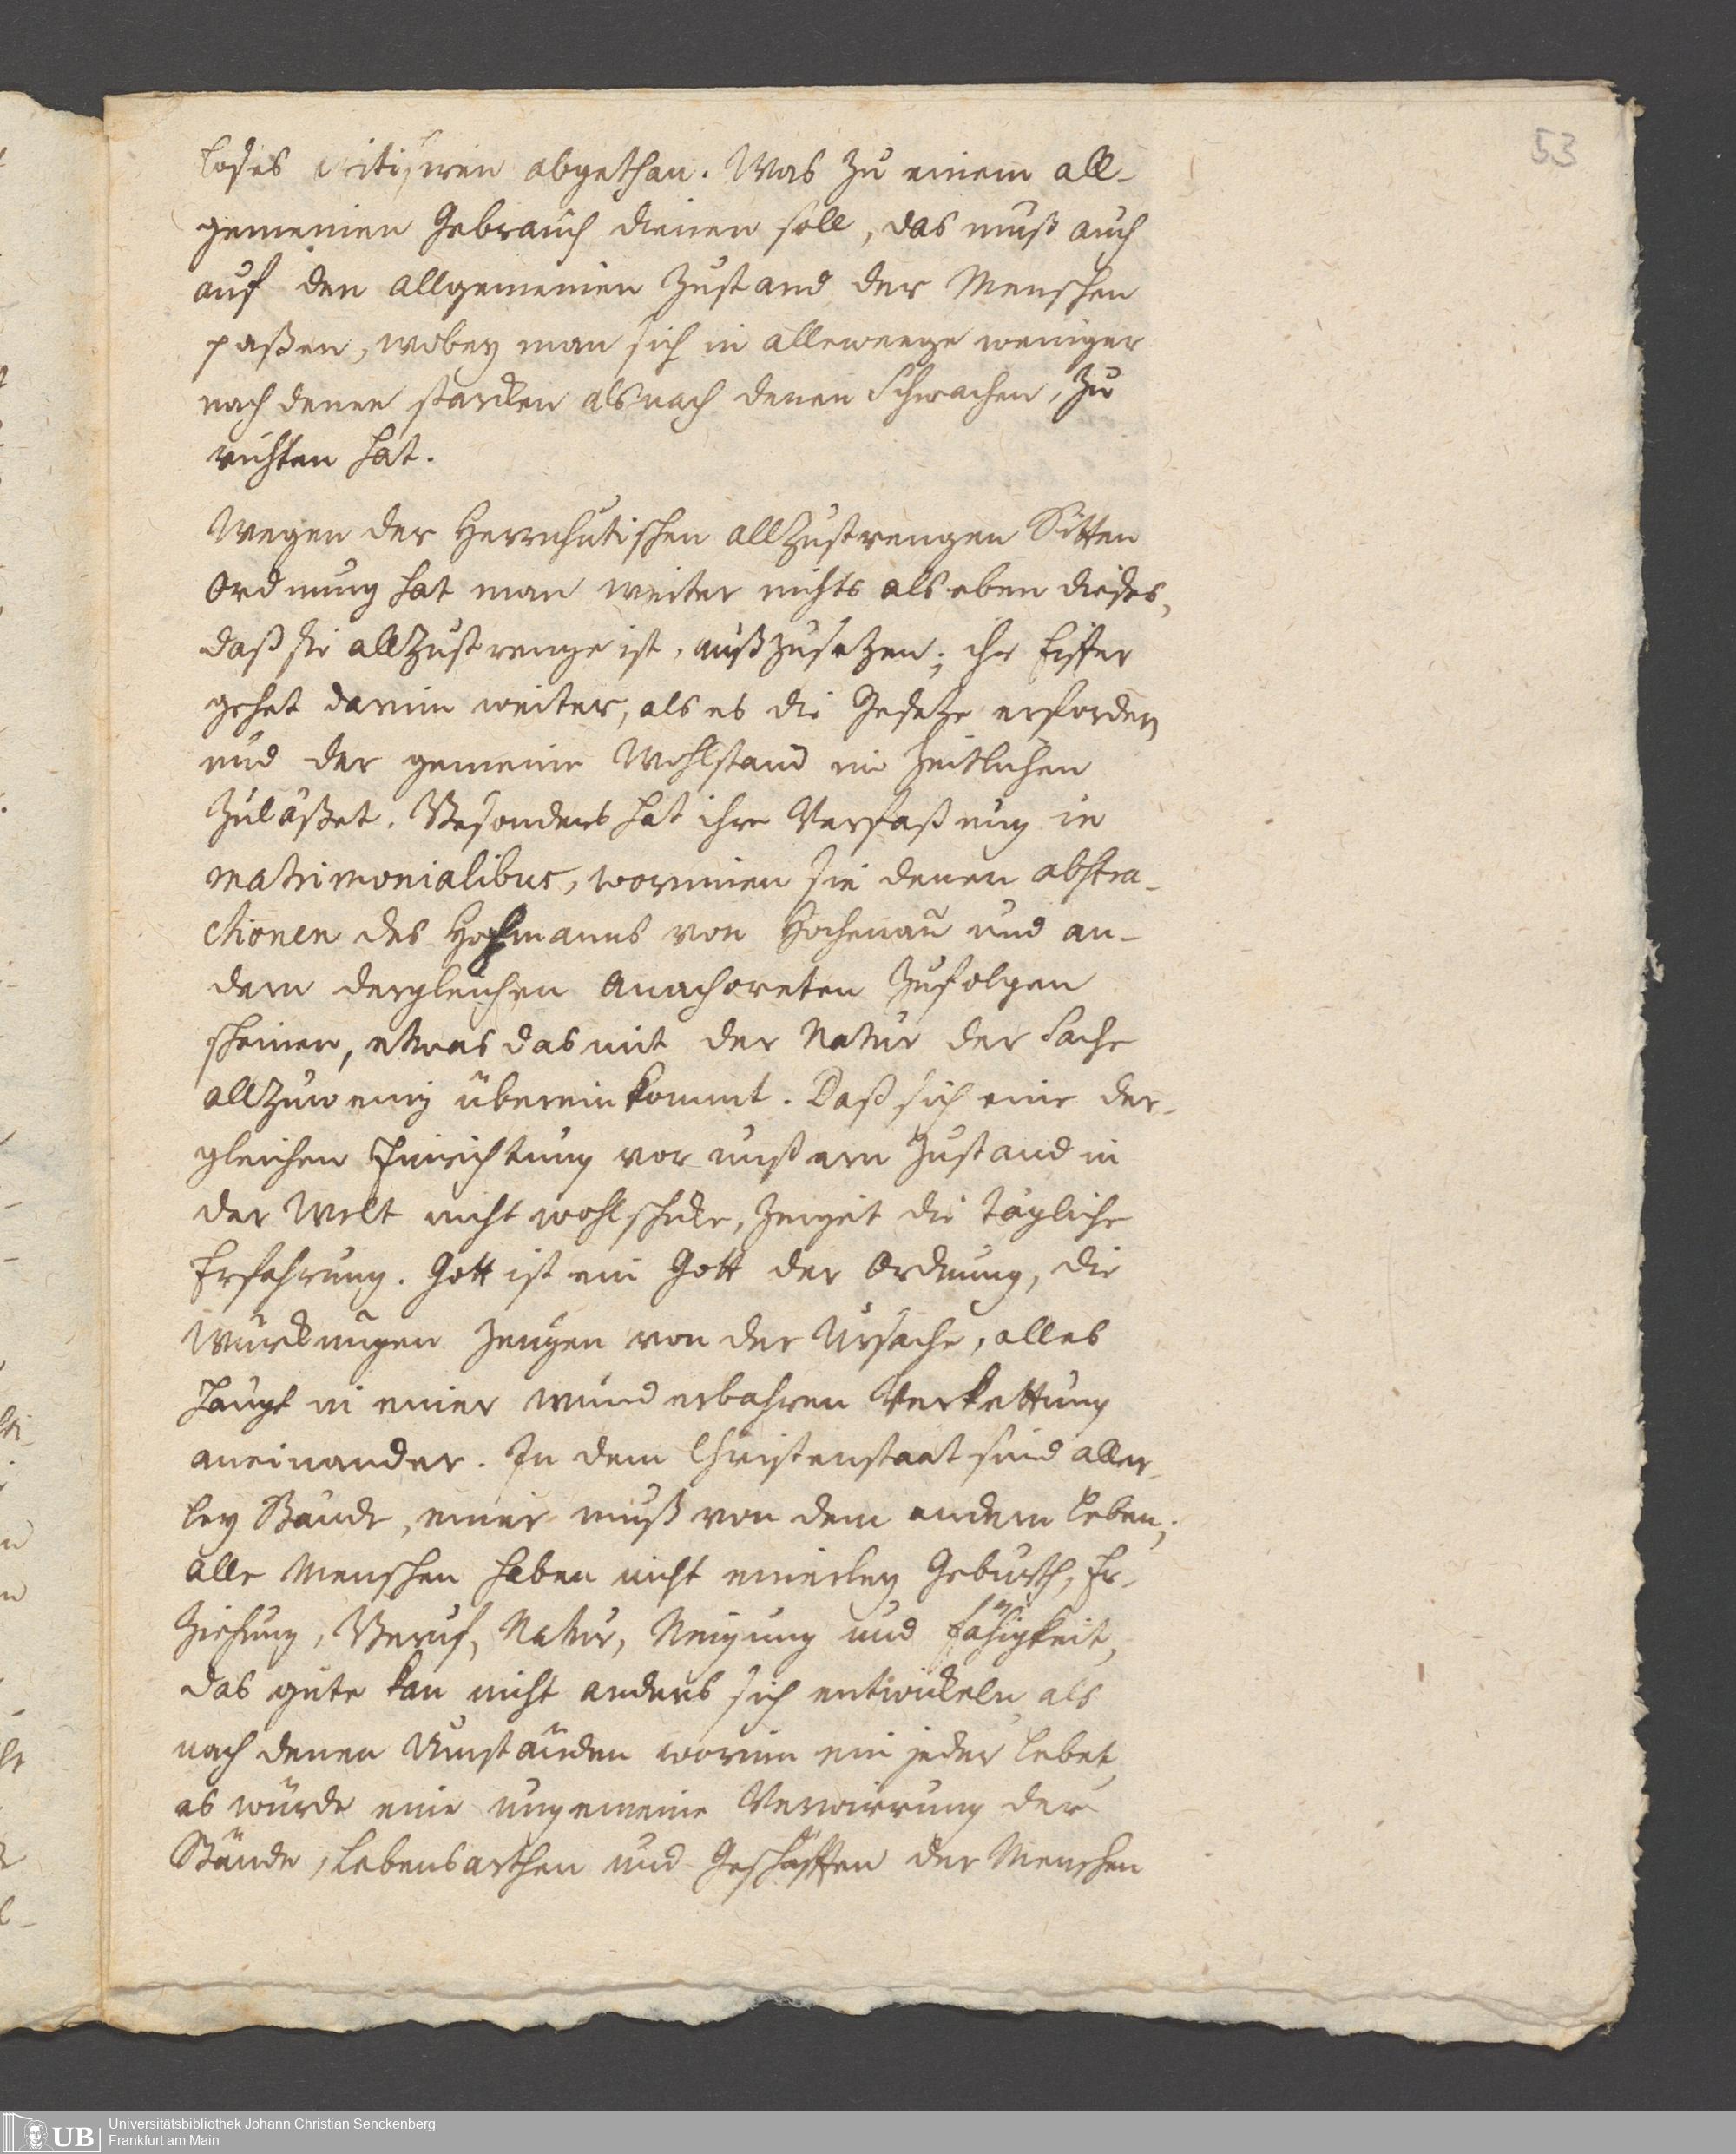 53
loses critisiren abgethan. Was zu einem all-
gemeinen Gebrauch dienen soll, das muß auch
auf den allgemeinen Zustand der Menschen
paßen, wobey man sich in alleweege weniger
nach denen starcken als nach denen Schwachen, zu
richten hat.
Wegen der Herrnhutischen allzustrengen Sitten
Ordnung hat man weiter nichts als eben dieses,
daß sie allzustrenge ist, außzusetzen; ihr Eiffer
gehet darinn weiter, als es die Gesetze erfordern
und der gemeine Wohlstand im Zeitlichen
zuläßet. Besonders hat ihre Verfaßung in
matrimonialibus, worinnen sie denen abstra-
ctionen des Hochmanns von Hochenau und an-
dern dergleichen Anachoreten zufolgen
scheinen, etwas das mit der Natur der Sache
allzuwenig übereinkommt. Daß sich eine der-
gleichen Einrichtung vor unßern Zustand in
der Welt nicht wohl schicke, zeiget die tägliche
Erfahrung. Gott ist ein Gott der Ordnung, die
Würckungen zeugen von der Ursache, alles
hängt in einer wunderbahren Verkettung
aneinander. In dem Christenstaat sind aller-
ley Stände, einer muß von dem andern leben;
alle Menschen haben nicht einerley Geburth, Er-
ziehung, Beruf, Natur, Neigung und Fähigkeit,
das gute kan nicht anders sich entwickeln als
nach denen Umständen worinn ein jeder lebet,
es würde eine ungemeine Verwirrung der
Stände, Lebensarthen und Geschäfften der Menschen
UB
Universitätsbibliothek Johann Christian Senckenberg
Frankfurt am Main